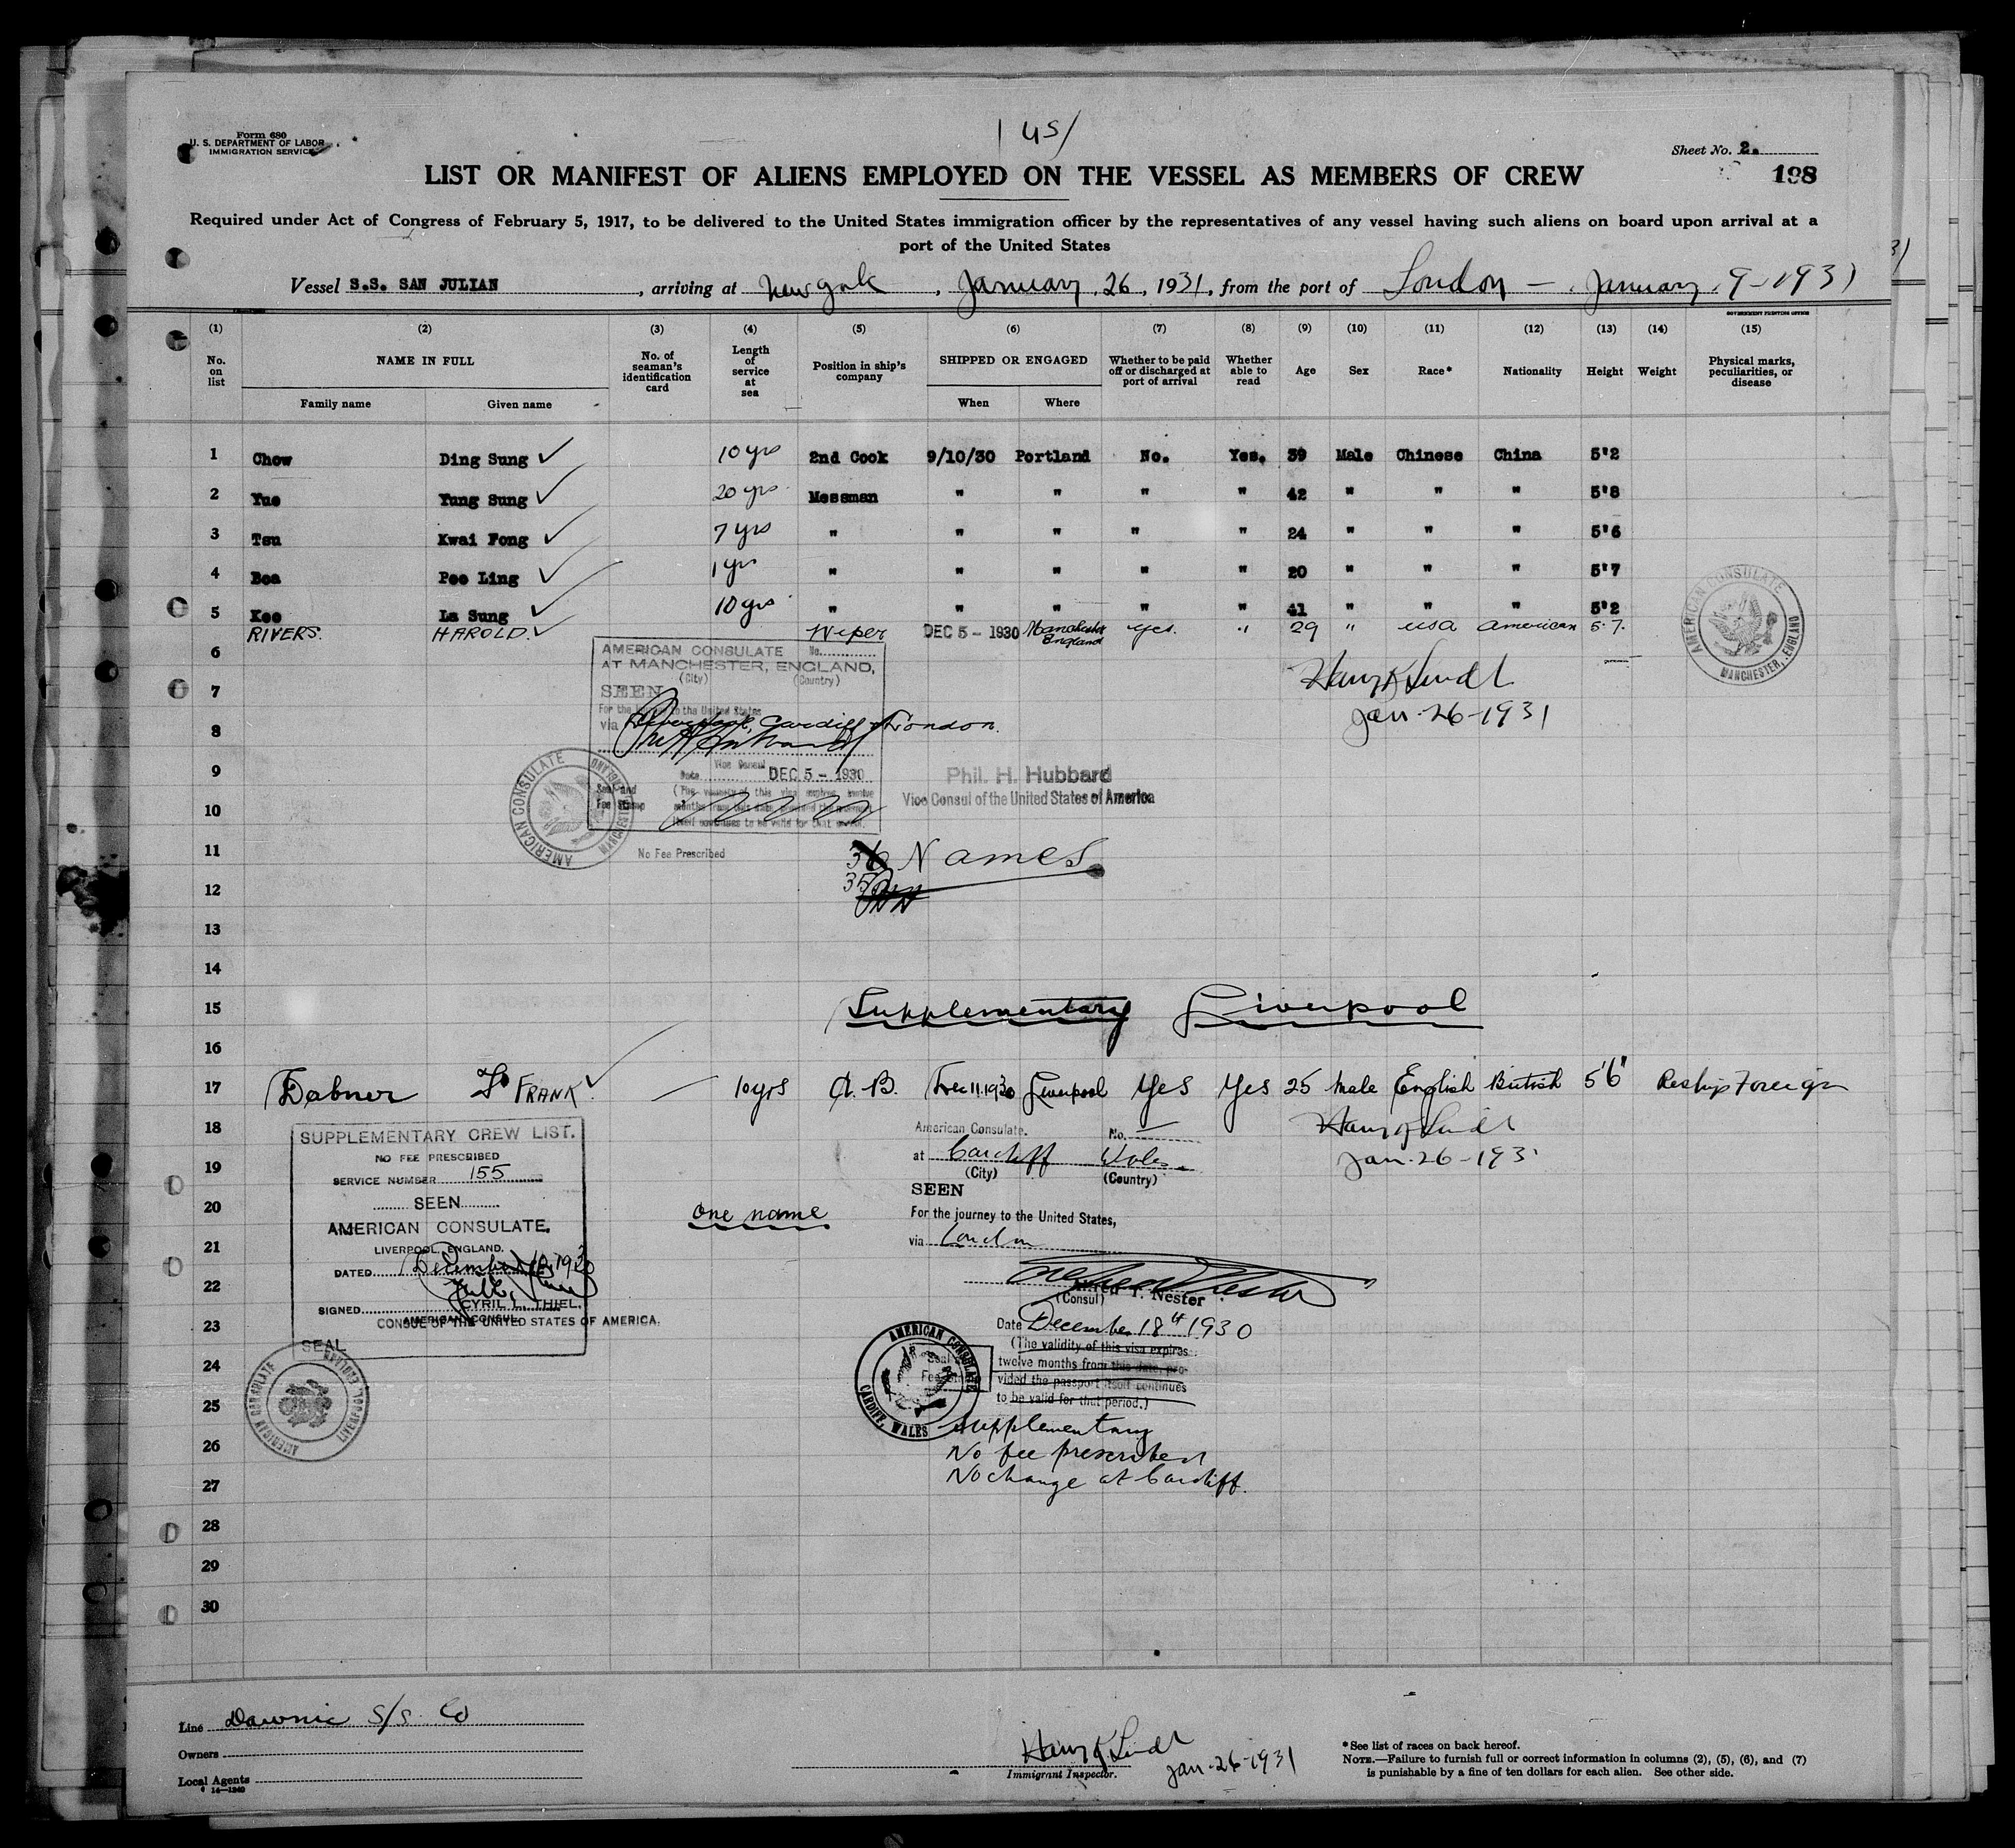 Form 680
U. S. DEPARTMENT OF LABOR
IMMIGRATION SERVICE
1 us/
Sheet No. 2.
LIST OR MANIFEST OF ALIENS EMPLOYED ON THE VESSEL AS MEMBERS OF CREW
198
Required under Act of Congress of February 5, 1917, to be delivered to the United States immigration officer by the representatives of any vessel having such aliens on board upon arrival at a
port of the United States
Vessel S.S. SAN JULIAN, arriving at New York, January 26, 1931, from the port of London - January 9-1931
GOVERNMENT PRINTING OFFICE
(1) (2) (3) (4) (5) (6) (7) (8) (9) (10) (11) (12) (13) (14) (15)
No. on list NAME IN FULL No. of seaman's identification card Length of service at sea Position in ship's company SHIPPED OR ENGAGED Whether to be paid off or discharged at port of arrival Whether able to read Age Sex Race* Nationality Height Weight Physical marks, peculiarities, or disease
Family name Given name When Where
1 Chow Ding Sung ✓ 10 yrs 2nd Cook 9/10/30 Portland No. Yes. 39 Male Chinese China 5'2
2 Yue Yung Sung ✓ 20 yrs Messman " " " " 42 " " " 5'8
3 Tsu Kwai Fong ✓ 7 yrs " " " " " 24 " " " 5'6
4 Boa Poo Ling ✓ 1 yr " " " " " 20 " " " 5'7
5 Kee La Sung ✓ 10 yrs " " " " " 41 " " " 5'2
RIVERS. HAROLD. ✓ Wiper DEC 5 - 1930 Manchester England Yes. " 29 " USA American 5.7.
6
7
8
9
10
11
12
13
14
15
16
AMERICAN CONSULATE No.
AT MANCHESTER, ENGLAND,
(City) (Country)
SEEN
For the journey to the United States
via Liverpool, Cardiff & London.
Vice Consul
Date DEC 5 - 1930
Seal and Fee Stamp
(The validity of this visa expires twelve
months from this date, provided the passport
itself continues to be valid for that period.
No Fee Prescribed
AMERICAN CONSULATE MANCHESTER, ENGLAND
Phil. H. Hubbard
Vice Consul of the United States of America
AMERICAN CONSULATE MANCHESTER, ENGLAND
Harry K Lindt
Jan. 26-1931
36 Names
35
Supplementary Liverpool
17 Dabner F. FRANK ✓ 10 yrs A. B. Dec 11. 1930 Liverpool Yes Yes 25 Male English British 5'6" Reships Foreign
Harry K Lindt
Jan. 26-193
18
19
20
21
22
23
24
25
26
27
28
29
30
SUPPLEMENTARY CREW LIST.
NO FEE PRESCRIBED
SERVICE NUMBER 155
SEEN
AMERICAN CONSULATE.
LIVERPOOL, ENGLAND.
DATED December 1930
SIGNED
CYRIL L. THIEL.
AMERICAN CONSUL
CONSUL OF THE UNITED STATES OF AMERICA.
SEAL
AMERICAN CONSULATE LIVERPOOL, ENGLAND
one name
American Consulate. No.
at Cardiff Wales
(City) (Country)
SEEN
For the journey to the United States,
via London
Alfred T. Nester
(Consul)
Date December 18th 1930
(The validity of this visa expires
twelve months from this date, pro-
vided the passport itself continues
to be valid for that period.)
AMERICAN CONSULATE CARDIFF, WALES
Supplementary
No fee prescribed
No change at Cardiff.
Line Dawnic S/S. Co
Owners
Local Agents
14—1240
Harry K. Lindt
Jan. 26-1931
Immigrant Inspector.
*See list of races on back hereof.
NOTE.—Failure to furnish full or correct information in columns (2), (5), (6), and (7)
is punishable by a fine of ten dollars for each alien. See other side.